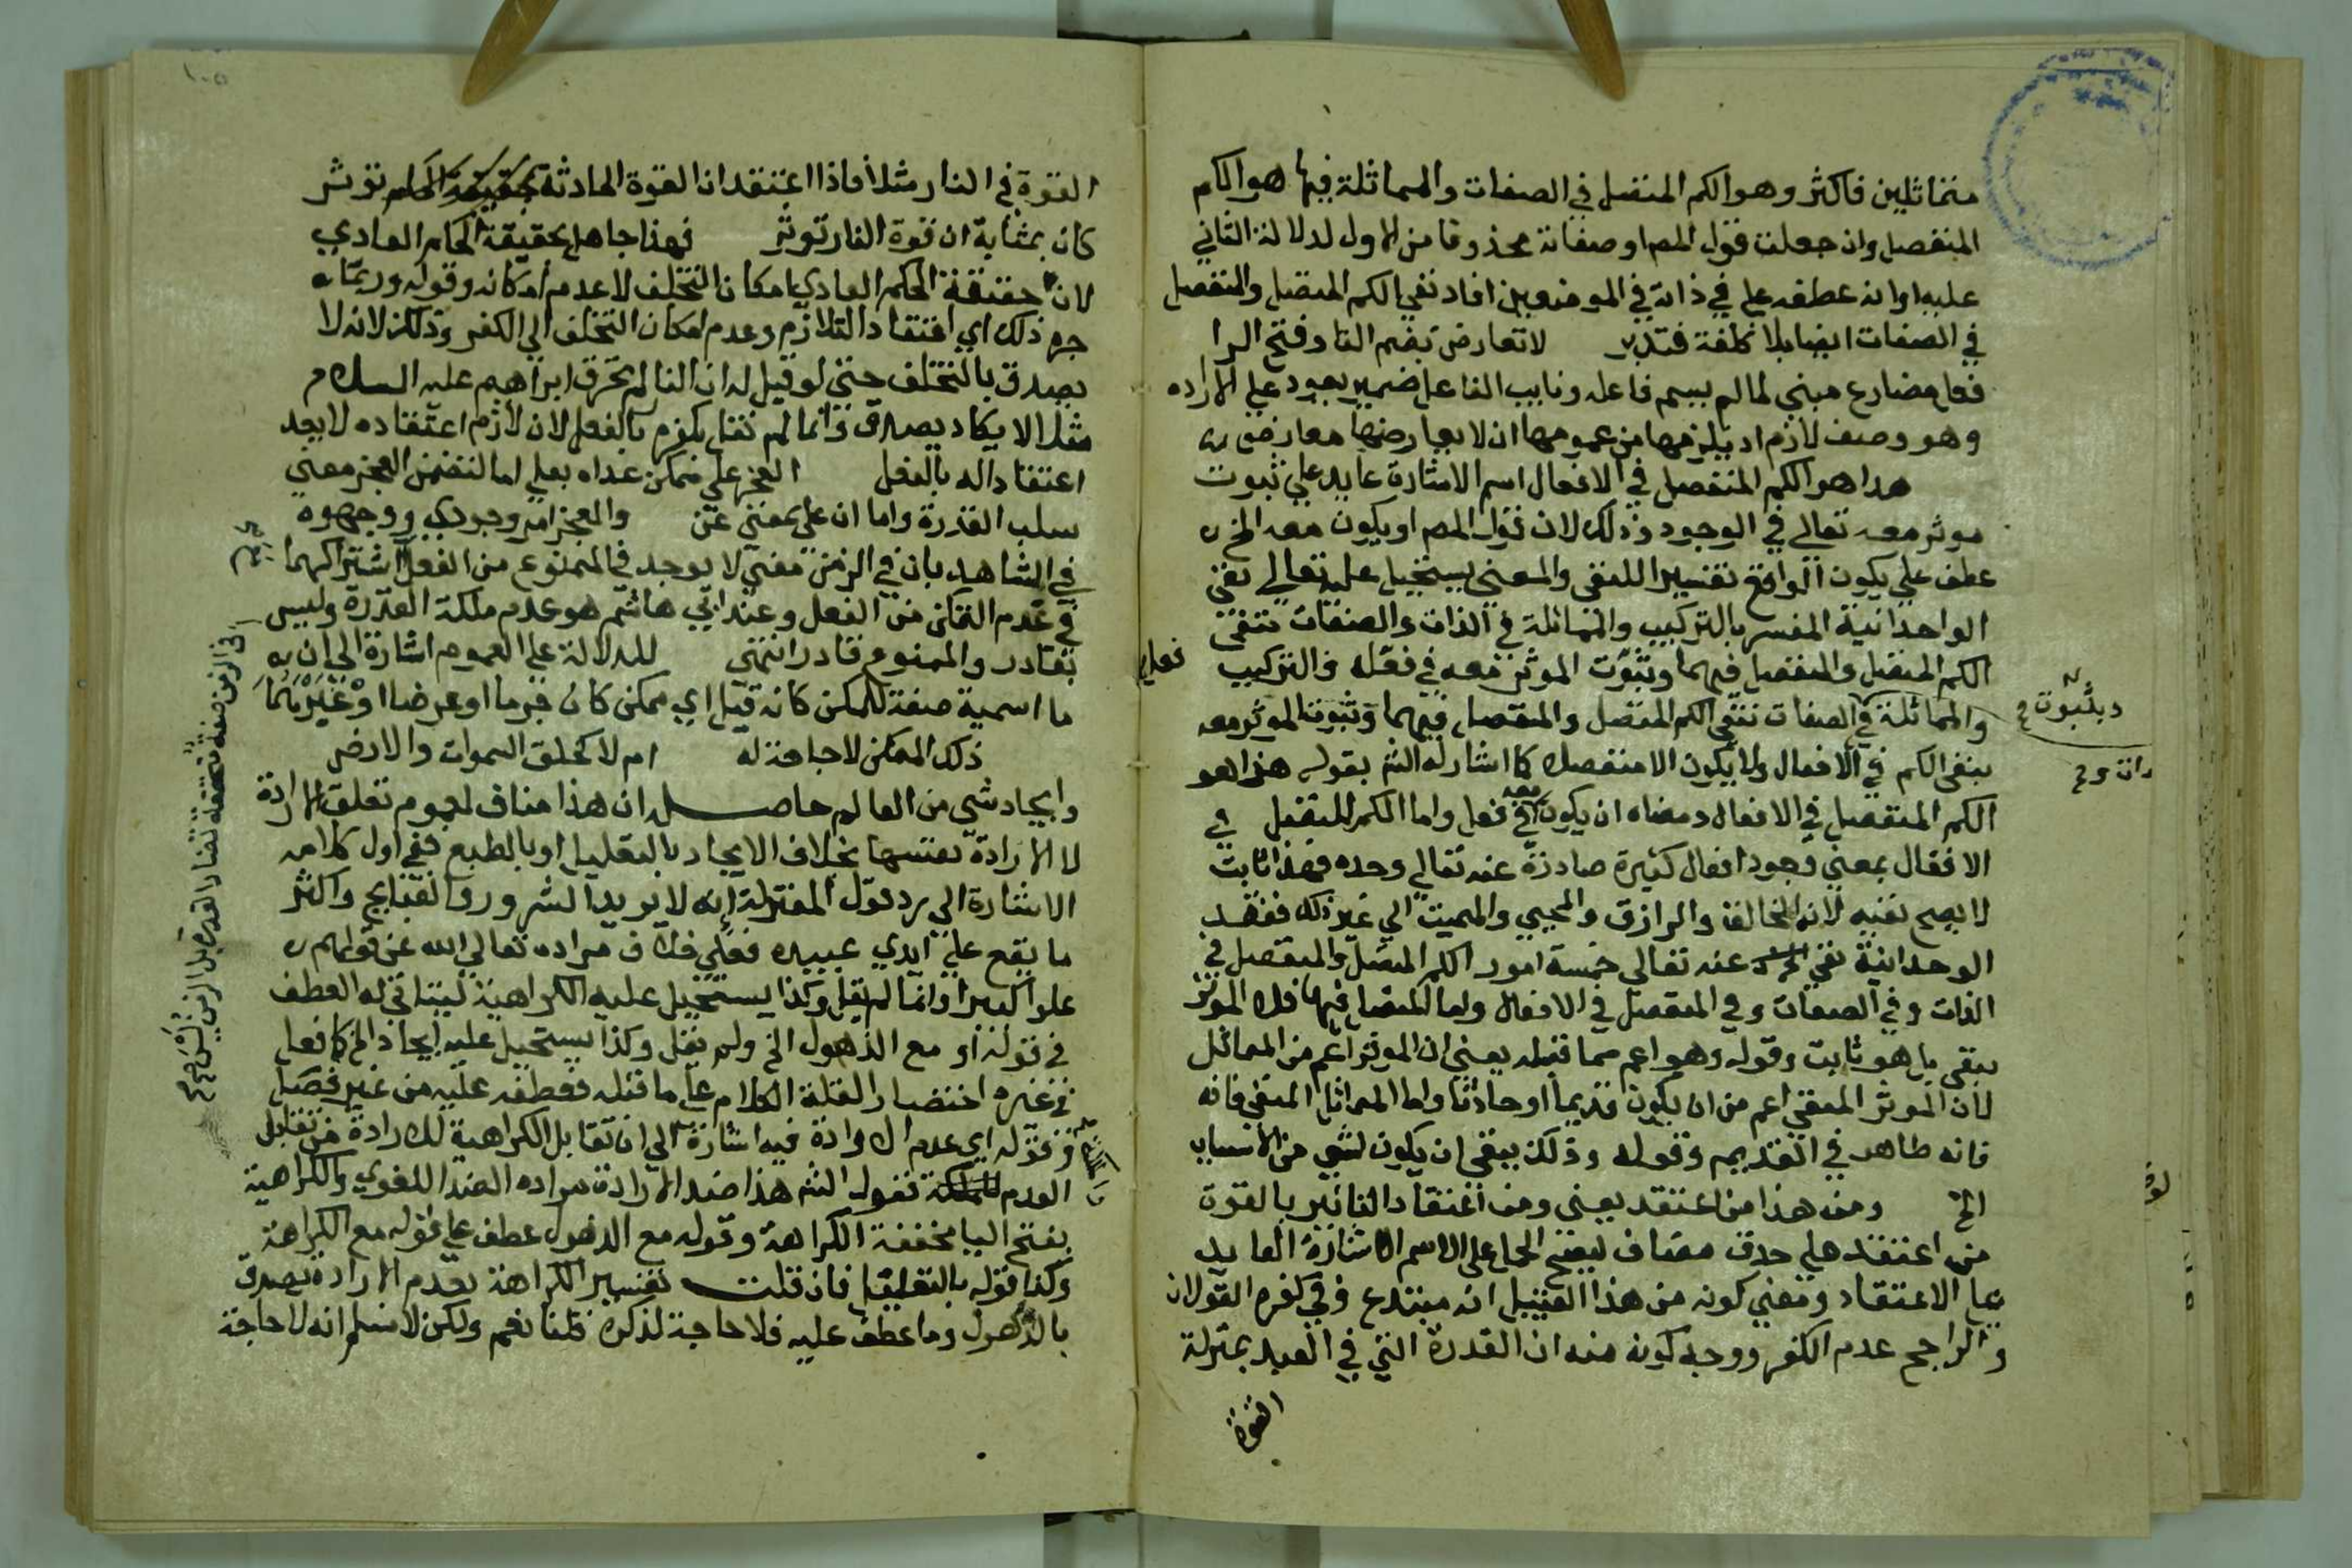 متماثلين فاكثر وهو الكم المنفصل في الصفات والمماثلة فيها هو الكم
المنفصل وان جعلت قول المص او صفاته محذوفا من الاول لدلالة الثاني
عليه او انه عطفه علي في ذاته في الموضعين افاد نفي الكم المتصل والمنفصل
في الصفات ايضا بلا كلفة فتدبر لا تعارض بضم التا وفتح الرا
فعل مضارع مبني لما لم يسم فاعله ونايب الفاعل ضمير يعود علي الاراده
وهو وصف لازم اد يلزمها من عمومها ان لا يعارضها معارض
هذا هو الكم المنفصل في الافعال اسم الاشارة عايد علي ثبوت
موثر معه تعالي في الوجود وذلك لان قول المص او يكون معه الخ
عطف علي يكون الواقع تفسيرا للنفي والمعني يستحيل عليه تعالي نفي
الواحدانية المفسر بالتركيب والمماثلة في الذات والصفات فنفي
الكم المتصل والمنفصل فيهما وثبوت الموثر معه في فعله فالتركيب
والمماثلة في الصفات نفي الكم المتصل والمنفصل فيهما وثبوت الموثر معه
ينفي الكم في الافعال ولا يكون الا منفصلا كما اشار له الش بقوله هذا هو
الكم المنفصل في الافعال ومعناه ان يكون معه في فعل واما الكم المتصل في
الافعال بمعني وجود افعال كثيرة صادرة عنه تعالي وحده فهذا ثابت
لا يصح نفيه لانه الخالق والرازق والمحيي والمميت الي غير ذلك فقصد
الوحدانية نفي عنه تعالي خمسة امور الكم المتصل والمنفصل في
الذات وفي الصفات وفي المنفصل في الافعال واما المتصل فيها فلا
ينفي بل هو ثابت وقوله وهو اعم مما قبله يعني ان الموثر اعم من المماثل
لان الموثر المنفي اعم من ان يكون قديما او حادثا واما المماثل المنفي فانه
فانه ظاهر في القديم وقوله وذلك ينفي ان يكون لشي من الاسباب
الخ ومن هذا من اعتقد يعني ومن اعتقاد التاثير بالقوة
من اعتقد علي حدف مضاف ليصح الحمل علي الاسم الاشارة العايد
علي الاعتقاد ومعني كونه من هذا القبيل انه مبتدع وفي كفره القولان
والراجح عدم الكفر ووجه كونه منه ان القدرة التي في العبد بمنزلة
القوة
القوة في النار مثلا فاذا اعتقد ان القوة الحادثة توثر
كان بمثابة ان قوة النار توثر فهذا جاهل بحقيقة الحكم العادي
لان حقيقة الحكم العادي امكان التخلف لا عدم امكانه وقوله وربما
جره ذلك اي اعتقاد التلازم وعدم امكان التخلف الي الكفر وذلك لانه لا
يصدق بالتخلف حتي لو قيل له ان النار لم تحرق ابراهيم عليه السلام
مثلا لا يكاد يصدق وانما لم نقل يكفر بالفعل لان لازم اعتقاده لا يعد
اعتقادا له بالفعل العجز علي ممكن عداه بعلي اما لتضمن العجز معني
سلب القدرة واما ان علي بمعني عن والعجز امر وجودي ووجهوه
في الشاهد بان في الزمن معني لا يوجد في الممنوع من الفعل اشتراكهما
في عدم التمكن من الفعل وعند ابي هاشم هو عدم ملكة القدرة وليس
بقادر والممنوع قادر انتهي للدلالة علي العموم اشارة الي ان
ما اسمية صفة للمكن كانه قيل اي ممكن كان جرما او عرضا او غيرهما
ذلك الممكن لا حاجة له ام لا كخلق السموات والارض
وايجاد شي من العالم حاصله ان هذا مناف لعموم تعلق الارادة
لا الارادة نفسها بخلاف الايجاد بالتعليل او بالطبع ففي اول كلامه
الاشارة الي رد قول المعتزلة انه لا يريد الشرور والقبايح واكثر
ما يقع علي ايدي عبيده فعلي خلاف مراده تعالي الله عن قولهم
علوا كبيرا وانما لم يقل وكذا يستحيل عليه الكراهية ليتاتي له العطف
في قوله او مع الذهول الخ ولم يقل وكذا يستحيل عليه ايجاد الخ كما فعل
في غيره اختصارا لقلة الكلام علي ما قبله فعطفه عليه من غير فصل
وقوله اي عدم الارادة فيه اشارة الي ان تقابل الكراهية للارادة من تقابل
العدم فقول الش هذا ضد الارادة مراده الضد اللغوي والكراهية
بفتح اليا مخففة الكراهة وقوله مع الذهول عطف علي قوله مع الكراهة
وكذا قوله بالتعليل فان قلت تفسير الكراهة بعدم الارادة يصدق
بالذهول وما عطف عليه فلا حاجة لذكره قلنا نعم ولكن لا نسلم انه لا حاجة